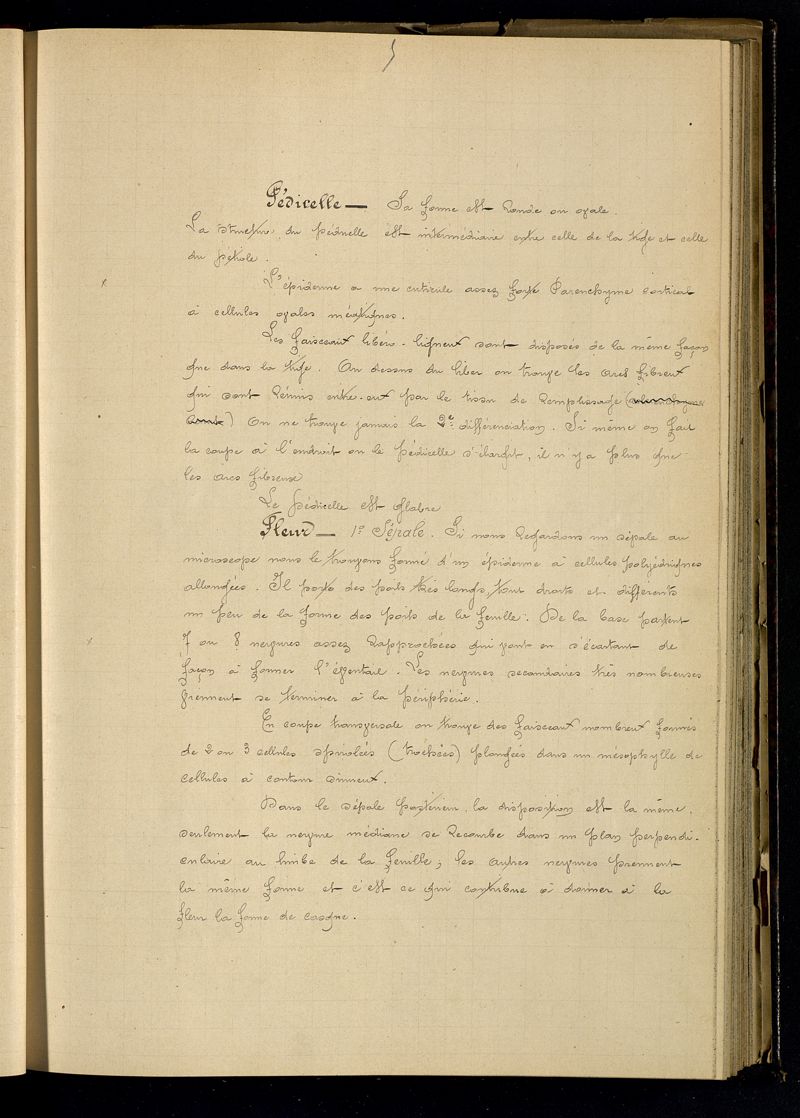 5
Pédicelle — Sa forme est Ronde ou ovale.
La structure du pédicelle est intermédiaire entre celle de la tige et celle
du pétiole.
L'épiderme a une cuticule assez forte Parenchyme cortical
à cellules ovales méatiques.
Les faisceaux libéro-ligneux sont disposés de la même façon
que dans la tige. Au dessus du liber on trouve les arcs fibreux
qui sont Réunis entre-eux par le tissu de Remplissage (
) On ne trouve jamais la 2e différenciation. Si même on fait
la coupe à l'endroit où le pédicelle s'élargit, il n'y a plus que
les arcs fibreux
Le pédicelle est glabre
Fleur — 1º Sépale. Si nous Regardons un sépale au
microscope nous le trouvons formé d'un épiderme à cellules polyédriques
allongées. Il porte des poils très longs, tout droits et différents
un peu de la forme des poils de la feuille. De la base partent
7 ou 8 nervures assez Rapprochées qui vont en s'écartant de
façon à former l'éventail. Les nervures secondaires très nombreuses
viennent se terminer à la périphérie.
En coupe transversale on trouve des faisceaux nombreux formés
de 2 ou 3 cellules spiralées (trachées) plongées dans un mésophylle de
cellules à contour sinueux.
Dans le sépale postérieur la disposition est la même,
seulement la nervure médiane se Recourbe dans un plan perpendi-
culaire au limbe de la feuille; les autres nervures prennent
la même forme et c'est ce qui contribue à donner à la
fleur la forme de casque.